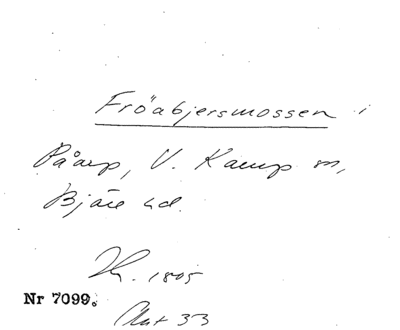 Fröabjersmossen i
Påarp, V. Karup sn,
Bjäre hd.
1805
Nr 7099.
Akt 33